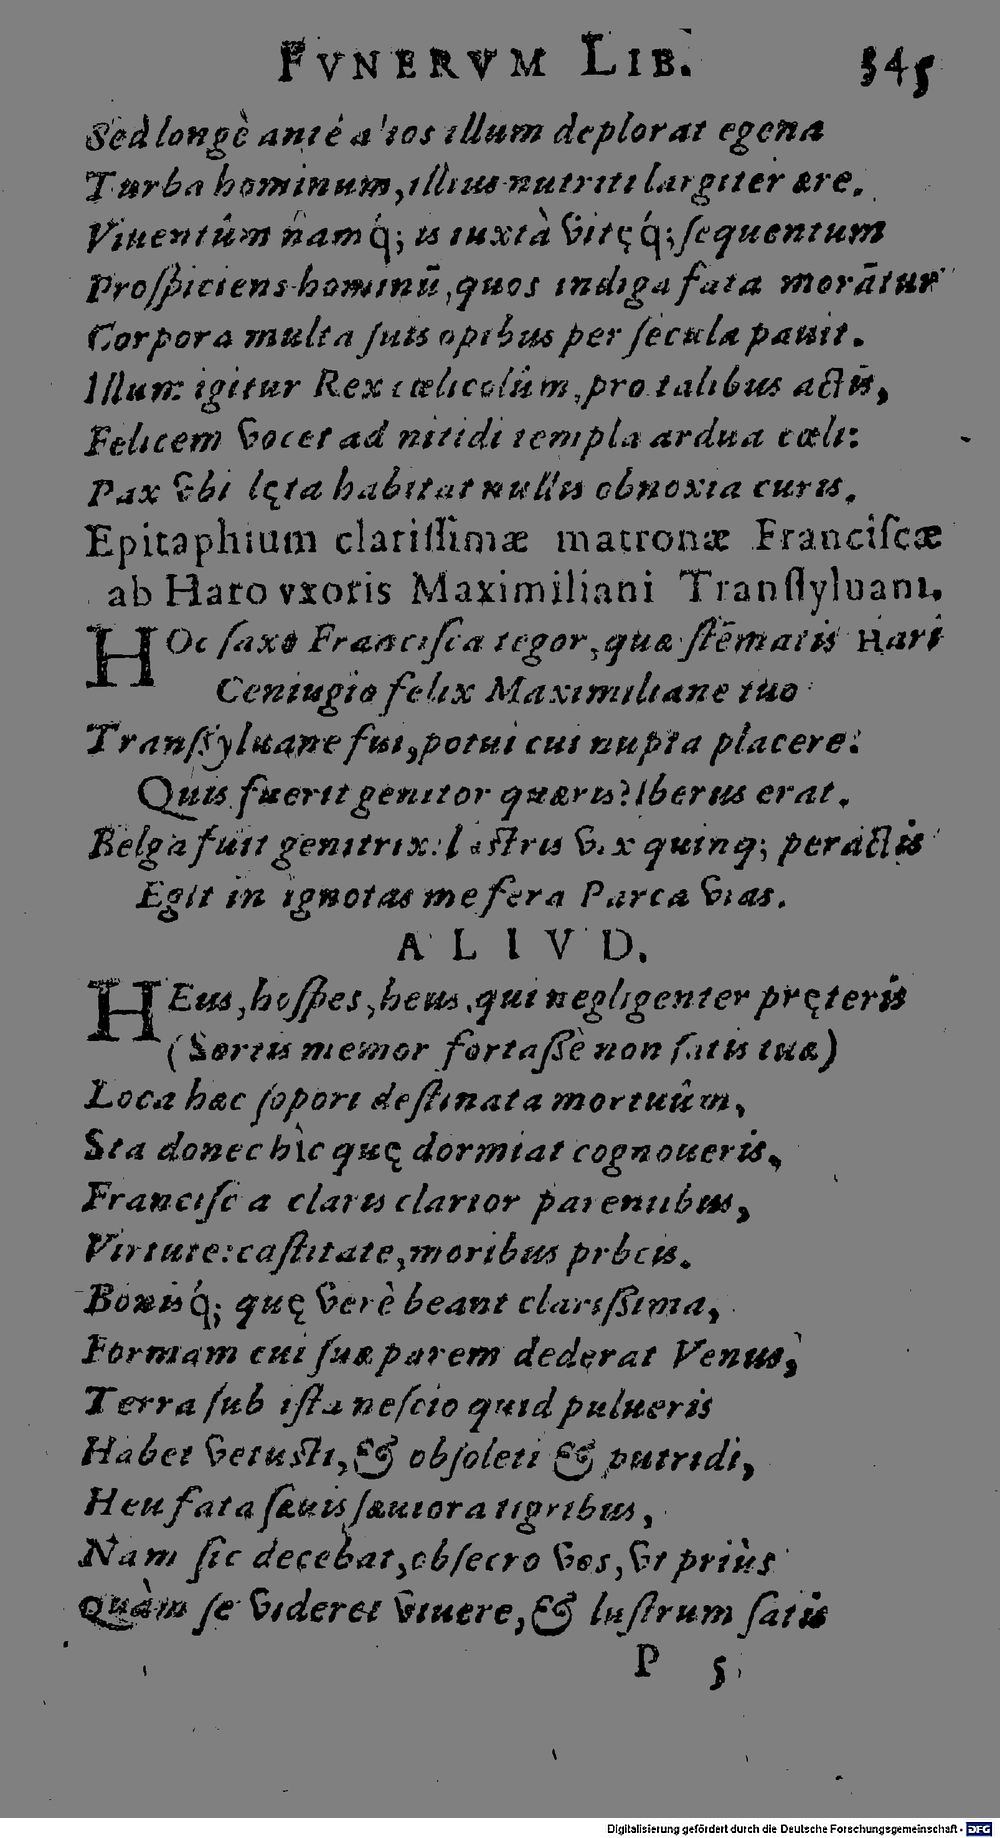 FVNERVM LIB. 345
Sed longè antè alios illum deplorat egena
Turba hominum, illius nutriti largiter ære.
Viuentûm namq́; is iuxtà vitęq́; ſequentum
Proſpiciens hominũ, quos indiga fata morãtur
Corpora multa ſuis opibus per ſecula pauit.
Illum igitur Rex cœlicolûm, pro talibus actis,
Felicem vocet ad nitidi templa ardua cœli:
Pax vbi lęta habitat nullis obnoxia curis.
Epitaphium clariſſimæ matronæ Franciſcæ
ab Haro vxoris Maximiliani Tranſſyluani.
HOc ſaxo Franciſca tegor, quæ ſtẽmatis Hari
Coniugio felix Maximiliane tuo
Tranſſyluane fui, potui cui nupta placere:
Quis fuerit genitor quæris? Iberus erat.
Belga fuit genitrix: luſtris vix quinq; peractis
Egit in ignotas me fera Parca vias.
ALIVD.
HEus, hoſpes, heus, qui negligenter pręteris
(Sortis memor fortaßè non ſatis tuæ)
Loca hæc ſopori deſtinata mortuûm,
Sta donec hìc quę dormiat cognoueris.
Franciſca claris clarior parentibus,
Virtute: caſtitate, moribus probis.
Bonisq́; quę verè beant clarißima,
Formam cui ſuæ parem dederat Venus,
Terra ſub iſta neſcio quid pulueris
Habet vetuſti, & obſoleti & putridi,
Heu fata ſæuis ſæuiora tigribus,
Nam ſic decebat, obſecro vos, vt priùs
Quàm ſe videret viuere, & luſtrum ſatis
P 5
Digitalisierung gefördert durch die Deutsche Forschungsgemeinschaft - DFG